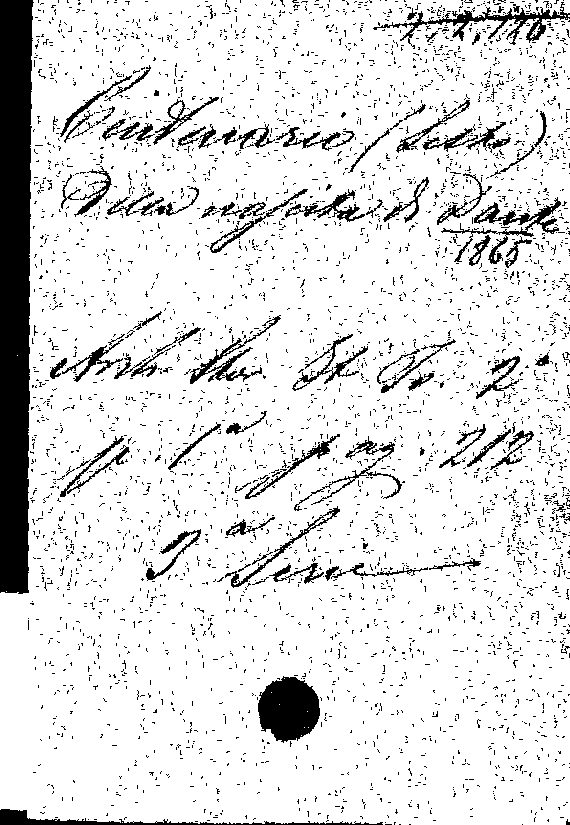 2.2.126
Centenario (Sesto)
Della nascita di Dante
1865
Arch. Stor. It. To. 2º
p. 1ª pag. 212
3ª Serie